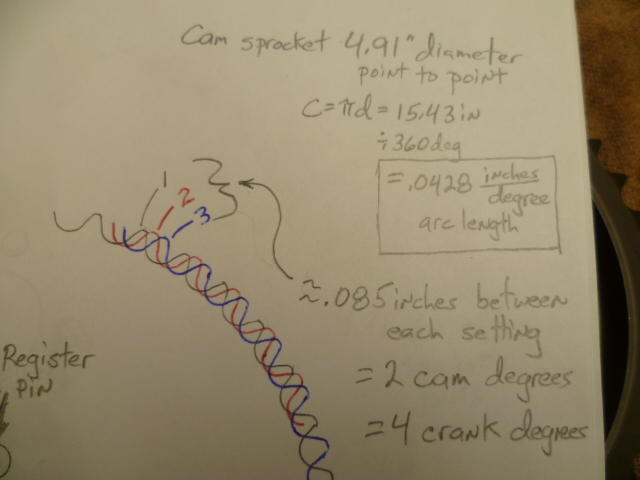 Cam sprocket 4.91" diameter
point to point
C=πd=15.43in
÷360deg
=.0428 inches/degree
arc length
1
2
3
≈.085 inches between
each setting
=2 cam degrees
=4 crank degrees
Register
PIN